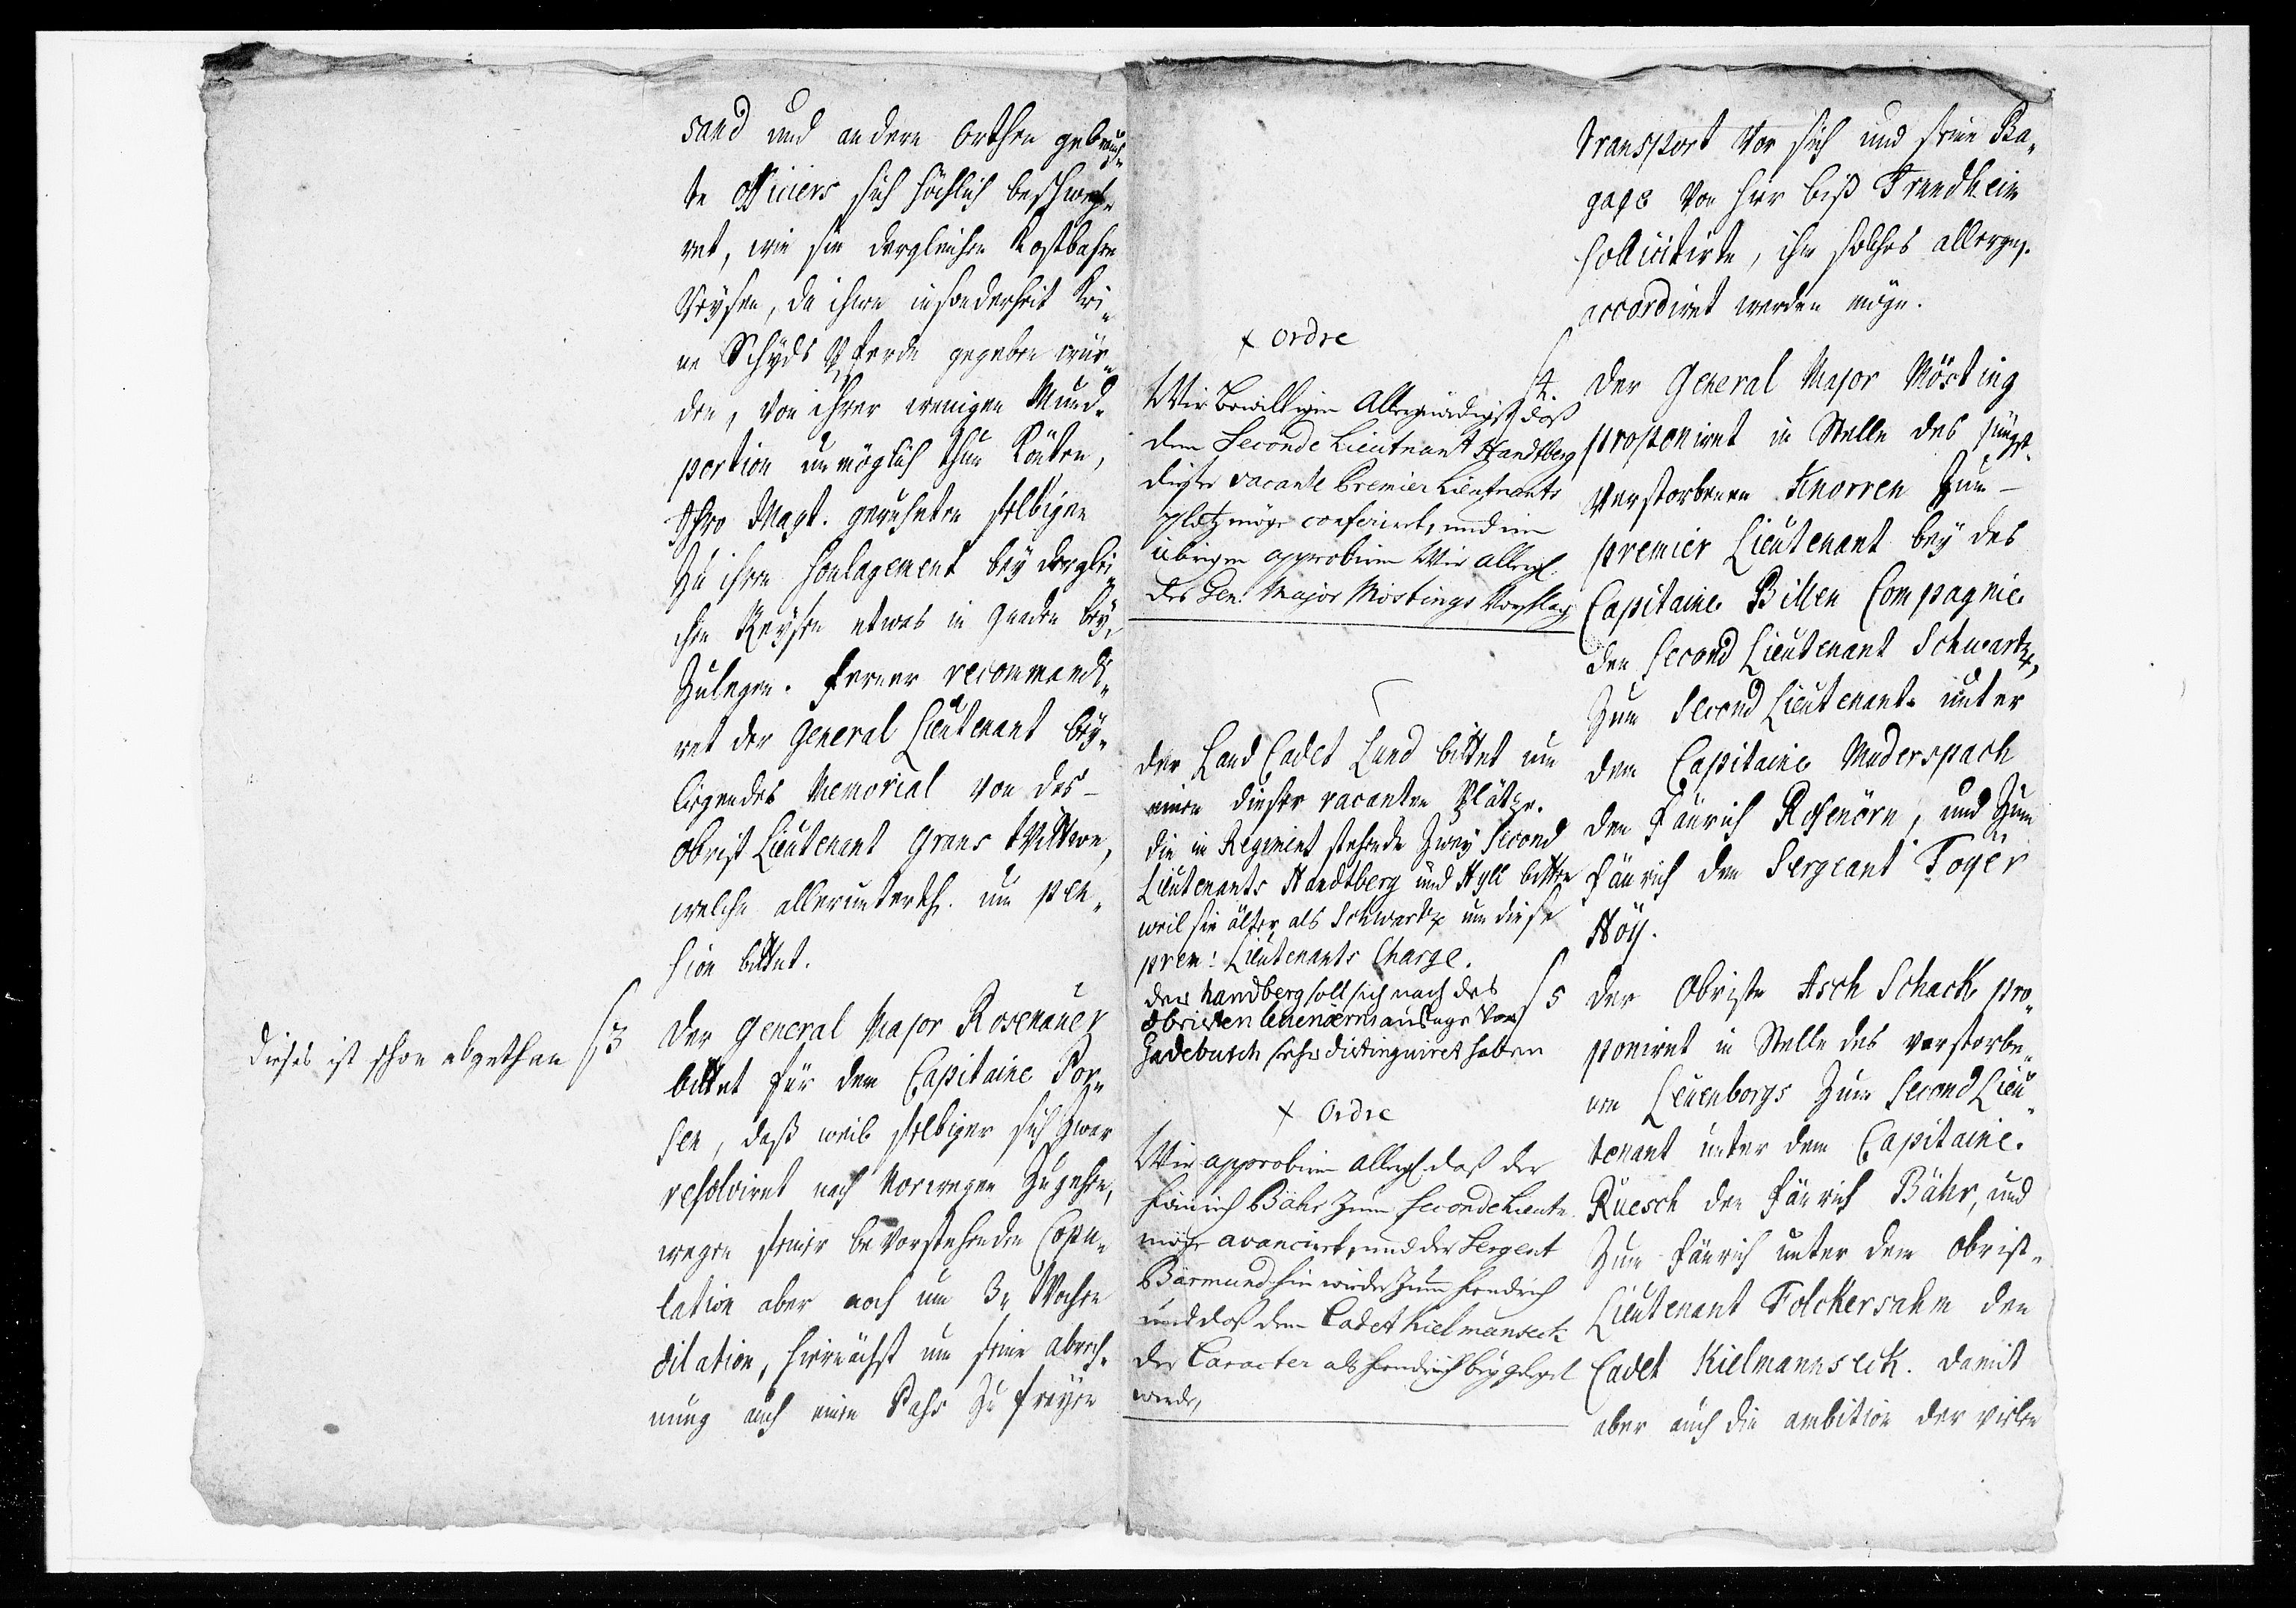 sand und andere Orthen gebrauch-
te Officiers sich höchlich beschweh-
ret, wie sie dergleichen Kostbahre
Reysen, da ihnen insonderheit Kei-
ne Schyds Pferde gegeben wür-
den, von ihrer wenigen Mund-
portion unmöglich thun Könten,
Ihro Mayt. geruheten selbigen
zu ihren Soulagement bey derglei-
chen Reysen etwas in Gnaden bey-
zulegen. Ferner recommendi-
ret der General Lieutenant bey-
liegendes Memorial von des-
Obrist Lieutenant Grans Wittwe,
welche allerunterth. um pen-
sion bittet.
Dieses ist schon abgethan
§ 3
Der General Major Rosenauer
bittet für dem Capitaine Por-
sen, daß weil selbiger sich zwar
resolviret nach Norwegen zu gehen,
wegen seiner bevorstehenden Copu-
lation aber noch um 3n Wochen
dilation, hiernächst um seine abrech-
nung auch einen Pass zu freyen
transport vor sich und seine Ba-
gage von hier biß Trundheim
sollicitirte, ihm solches allergn.
accordiret werden möge.
x Ordre
Wir bewilligen Allergnädigst, daß
dem Seconde Lieutnant Handtberg
dieser vacante Premier Lieutnants
platz möge conferiret, und im
übrigen approbiren Wir allergl.
des Gen. Major Möstings Vorschlag,
§ 4.
Der General Major Mösting
proponiret in Stelle des jüngst-
verstorbenen Knorren zum-
premier Lieutenant bey des
Capitaine Billen Compagnie
den Second Lieutenant Schwartz,
zum Second Lieutenant unter
dem Capitaine Muderspach
den Fänrich Rosenörn, und zum
Fänrich den Sergeant Toyer
Höy.
Der Land Cadet Lund bittet um
einen dieser vacanten Plätze.
Die im Regiment stehende zwey Second
Lieutenants Handtberg und Hyll bitten
weil sie älter als Schwartz um diese
prem: Lieutenants Charge.
der handberg soll sich nach des
Obristen aussage vor
Gadebusch sehr distinguiret haben
x Ordre
Wir approbiren allergl. daß der
Fänrich Bähr zum Seconde Lieutn.
möge avanciert, und der Sergent
Bärmund hinwieder zum Fendrich
und daß dem Cadet Kielmanseck
der Caracter als Fendrich beygeleget
werde,
§ 5
Der Obriste Asch Schack pro-
poniret in Stelle des verstorbe-
nen Leuenborgs zum Second Lieu-
tenant unter dem Capitaine
Ruesch den Fänrich Bähr, und
zum Fänrich unter dem Obrist-
Lieutenant Folckersahm den
Cadet Kielmannseck. Damit
aber auch die ambition der vielen